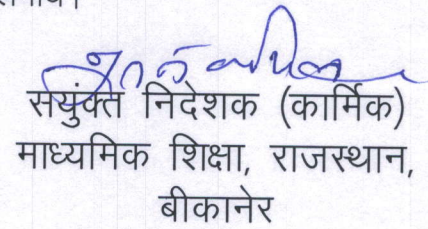 सयुंक्त निदेशक (कार्मिक)
माध्यमिक शिक्षा, राजस्थान,
बीकानेर